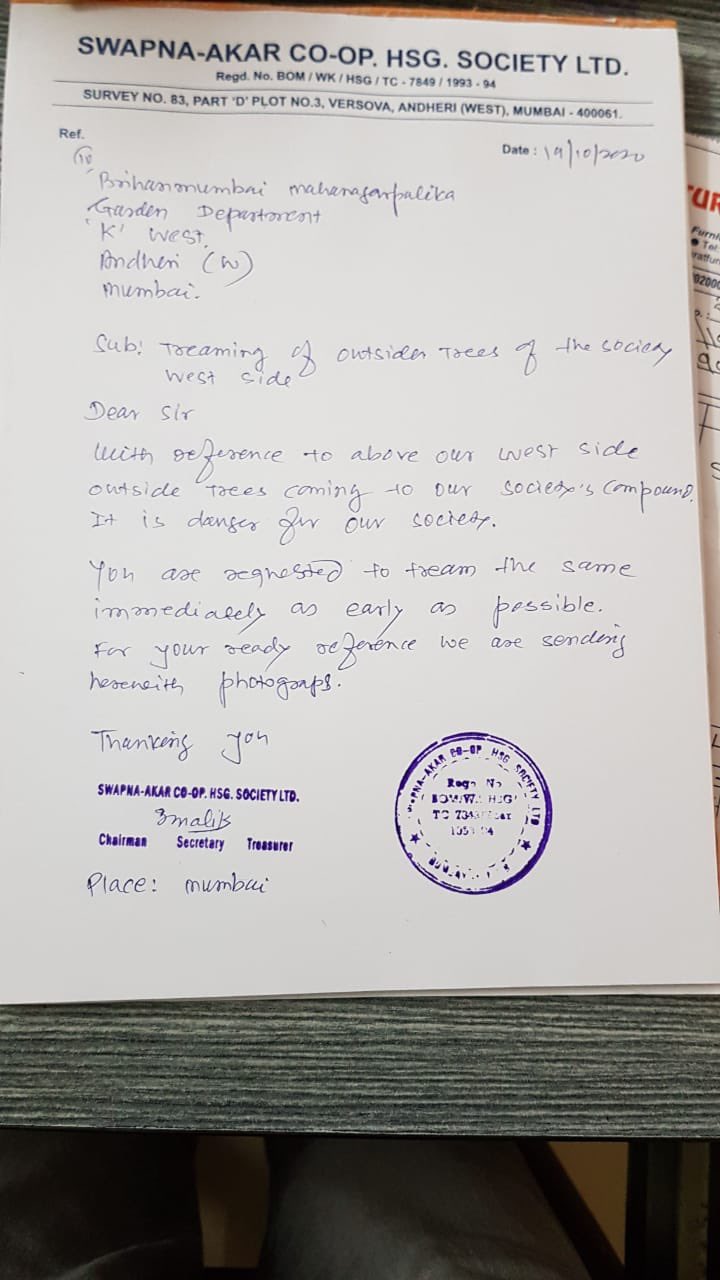 SWAPNA-AKAR CO-OP. HSG. SOCIETY LTD.
Regd. No. BOM / WK / HSG / TC - 7849 / 1993 - 94
SURVEY NO. 83, PART 'D' PLOT NO.3, VERSOVA, ANDHERI (WEST), MUMBAI - 400061.
Ref.
Date : 19/10/2020
To
Brihanmumbai mahanagarpalika
Garden Department
'K' West
Andheri (W)
Mumbai.
Sub: Treaming of outsider Trees of the society
West side
Dear Sir
With reference to above our west side
outside Trees coming to our society's compound.
It is danger for our society.
You are requested to tream the same
immediately as early as possible.
For your ready reference we are sending
herewith photograps.
Thanking you
SWAPNA-AKAR CO-OP. HSG. SOCIETY LTD.
Chairman Secretary Treasurer
Place: Mumbai
SWAPNA-AKAR CO-OP HSG SOCIETY LTD
Regn No
TUR
Furni